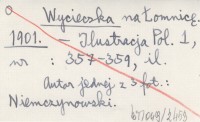 Wycieczka na Łomnicę.
1901. – Ilustracja Pol. 1,
nr : 357-359, il.
Autor jednej z 3 fot.:
Niemczynowski.